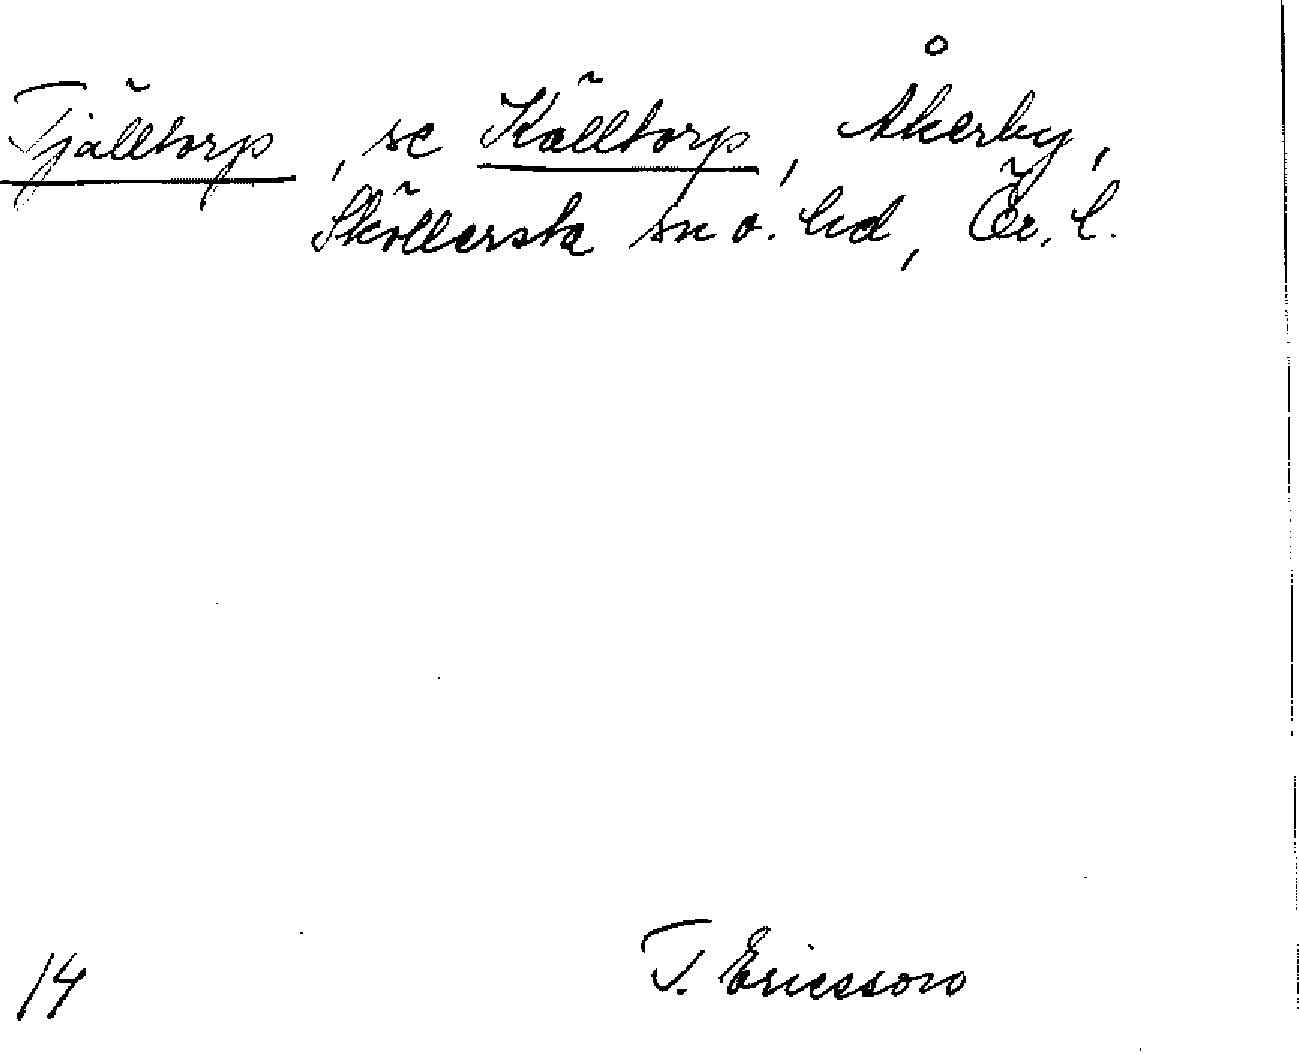 Tjälltorp, se Källtorp, Åkerby,
Sköllersta sn o. hd, Ör. l.
14
T. Ericsson